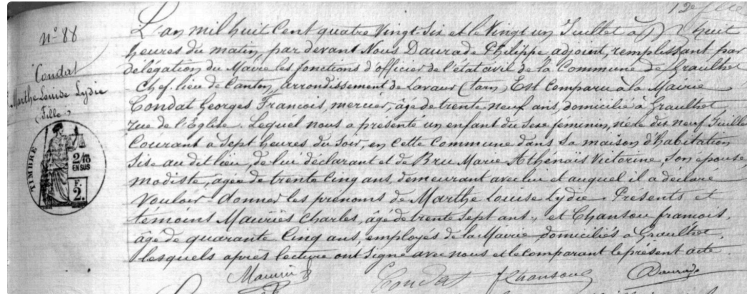 N° 88
Condat
Marthe Louise Lydie
(Fille)
TIMBRE
2/10 EN SUS
2 F.
L'an mil huit Cent quatre Vingt-Six et le Vingt un Juillet à huit
heures du matin, par devant Nous Daurade Philippe adjoint, remplissant par
délégation du Maire les fonctions d'officier de l'état civil de la Commune de Graulhet
Chef-lieu de Canton, arrondissement de Lavaur (Tarn) Est Comparu à la Mairie
Condat Georges François, mercier, âgé de trente neuf ans, domicilié à Graulhet
rue de l'Eglise. Lequel nous a présenté un enfant du Sexe féminin, né le dix neuf Juillet
Courant à Sept heures du Soir, en cette Commune dans Sa maison d'habitation
Sise au dit lieu, de lui déclarant et de Bru Marie Athenaïs Victorine, Son épouse
modiste, agée de trente Cinq ans demeurant avec lui et auquel il a déclaré
vouloir donner les prénoms de Marthe Louise Lydie. Présents et
témoins Mauriès Charles, âgé de trente Sept ans, et Chanson françois,
âgé de quarante Cinq ans, employés de la Mairie domiciliés à Graulhet
lesquels après lecture ont Signé avec nous et le comparant le présent acte.
Mauriès Condat Chanson Daurade